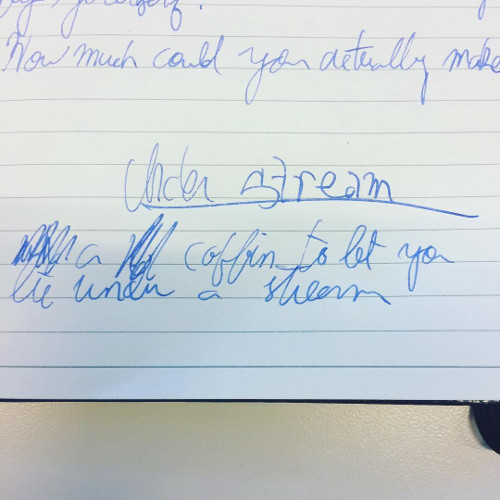 How much could you actually make
Under stream
a coffin to let you
lie under a stream